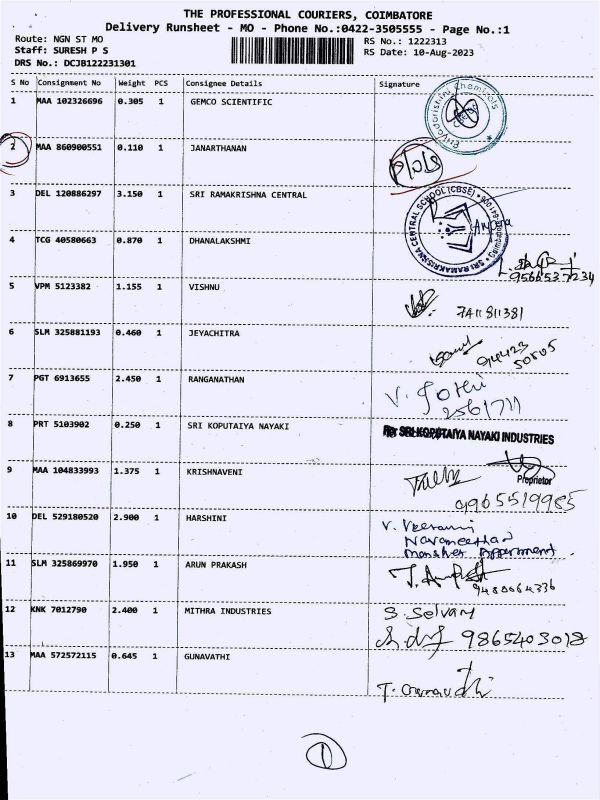 THE PROFESSIONAL COURIERS, COIMBATORE
Delivery Runsheet - MO - Phone No.:0422-3505555 - Page No.:1
Route: NGN ST MO
RS No.: 1222313
Staff: SURESH P S
RS Date: 10-Aug-2023
DRS No.: DCJB122231301
S No Consignment No Weight PCS Consignee Details Signature
1 MAA 102326696 0.305 1 GEMCO SCIENTIFIC
2 MAA 860900551 0.110 1 JANARTHANAN
3 DEL 120886297 3.150 1 SRI RAMAKRISHNA CENTRAL
SRI RAMAKRISHNA CENTRAL SCHOOL (CBSE)
4 TCG 40580663 0.870 1 DHANALAKSHMI
9566537234
5 VPM 5123382 1.155 1 VISHNU
7411811381
6 SLM 325881193 0.460 1 JEYACHITRA
94423
50505
7 PGT 6913655 2.450 1 RANGANATHAN
2561711
8 PRT 5103902 0.250 1 SRI KOPUTAIYA NAYAKI
For SRI KOPUTAIYA NAYAKI INDUSTRIES
Proprietor
9 MAA 104833993 1.375 1 KRISHNAVENI
9965519985
10 DEL 529180520 2.900 1 HARSHINI
11 SLM 325869970 1.950 1 ARUN PRAKASH
9480064336
12 KNK 7012790 2.400 1 MITHRA INDUSTRIES
S. Selvam
9865403018
13 MAA 572572115 0.645 1 GUNAVATHI
1